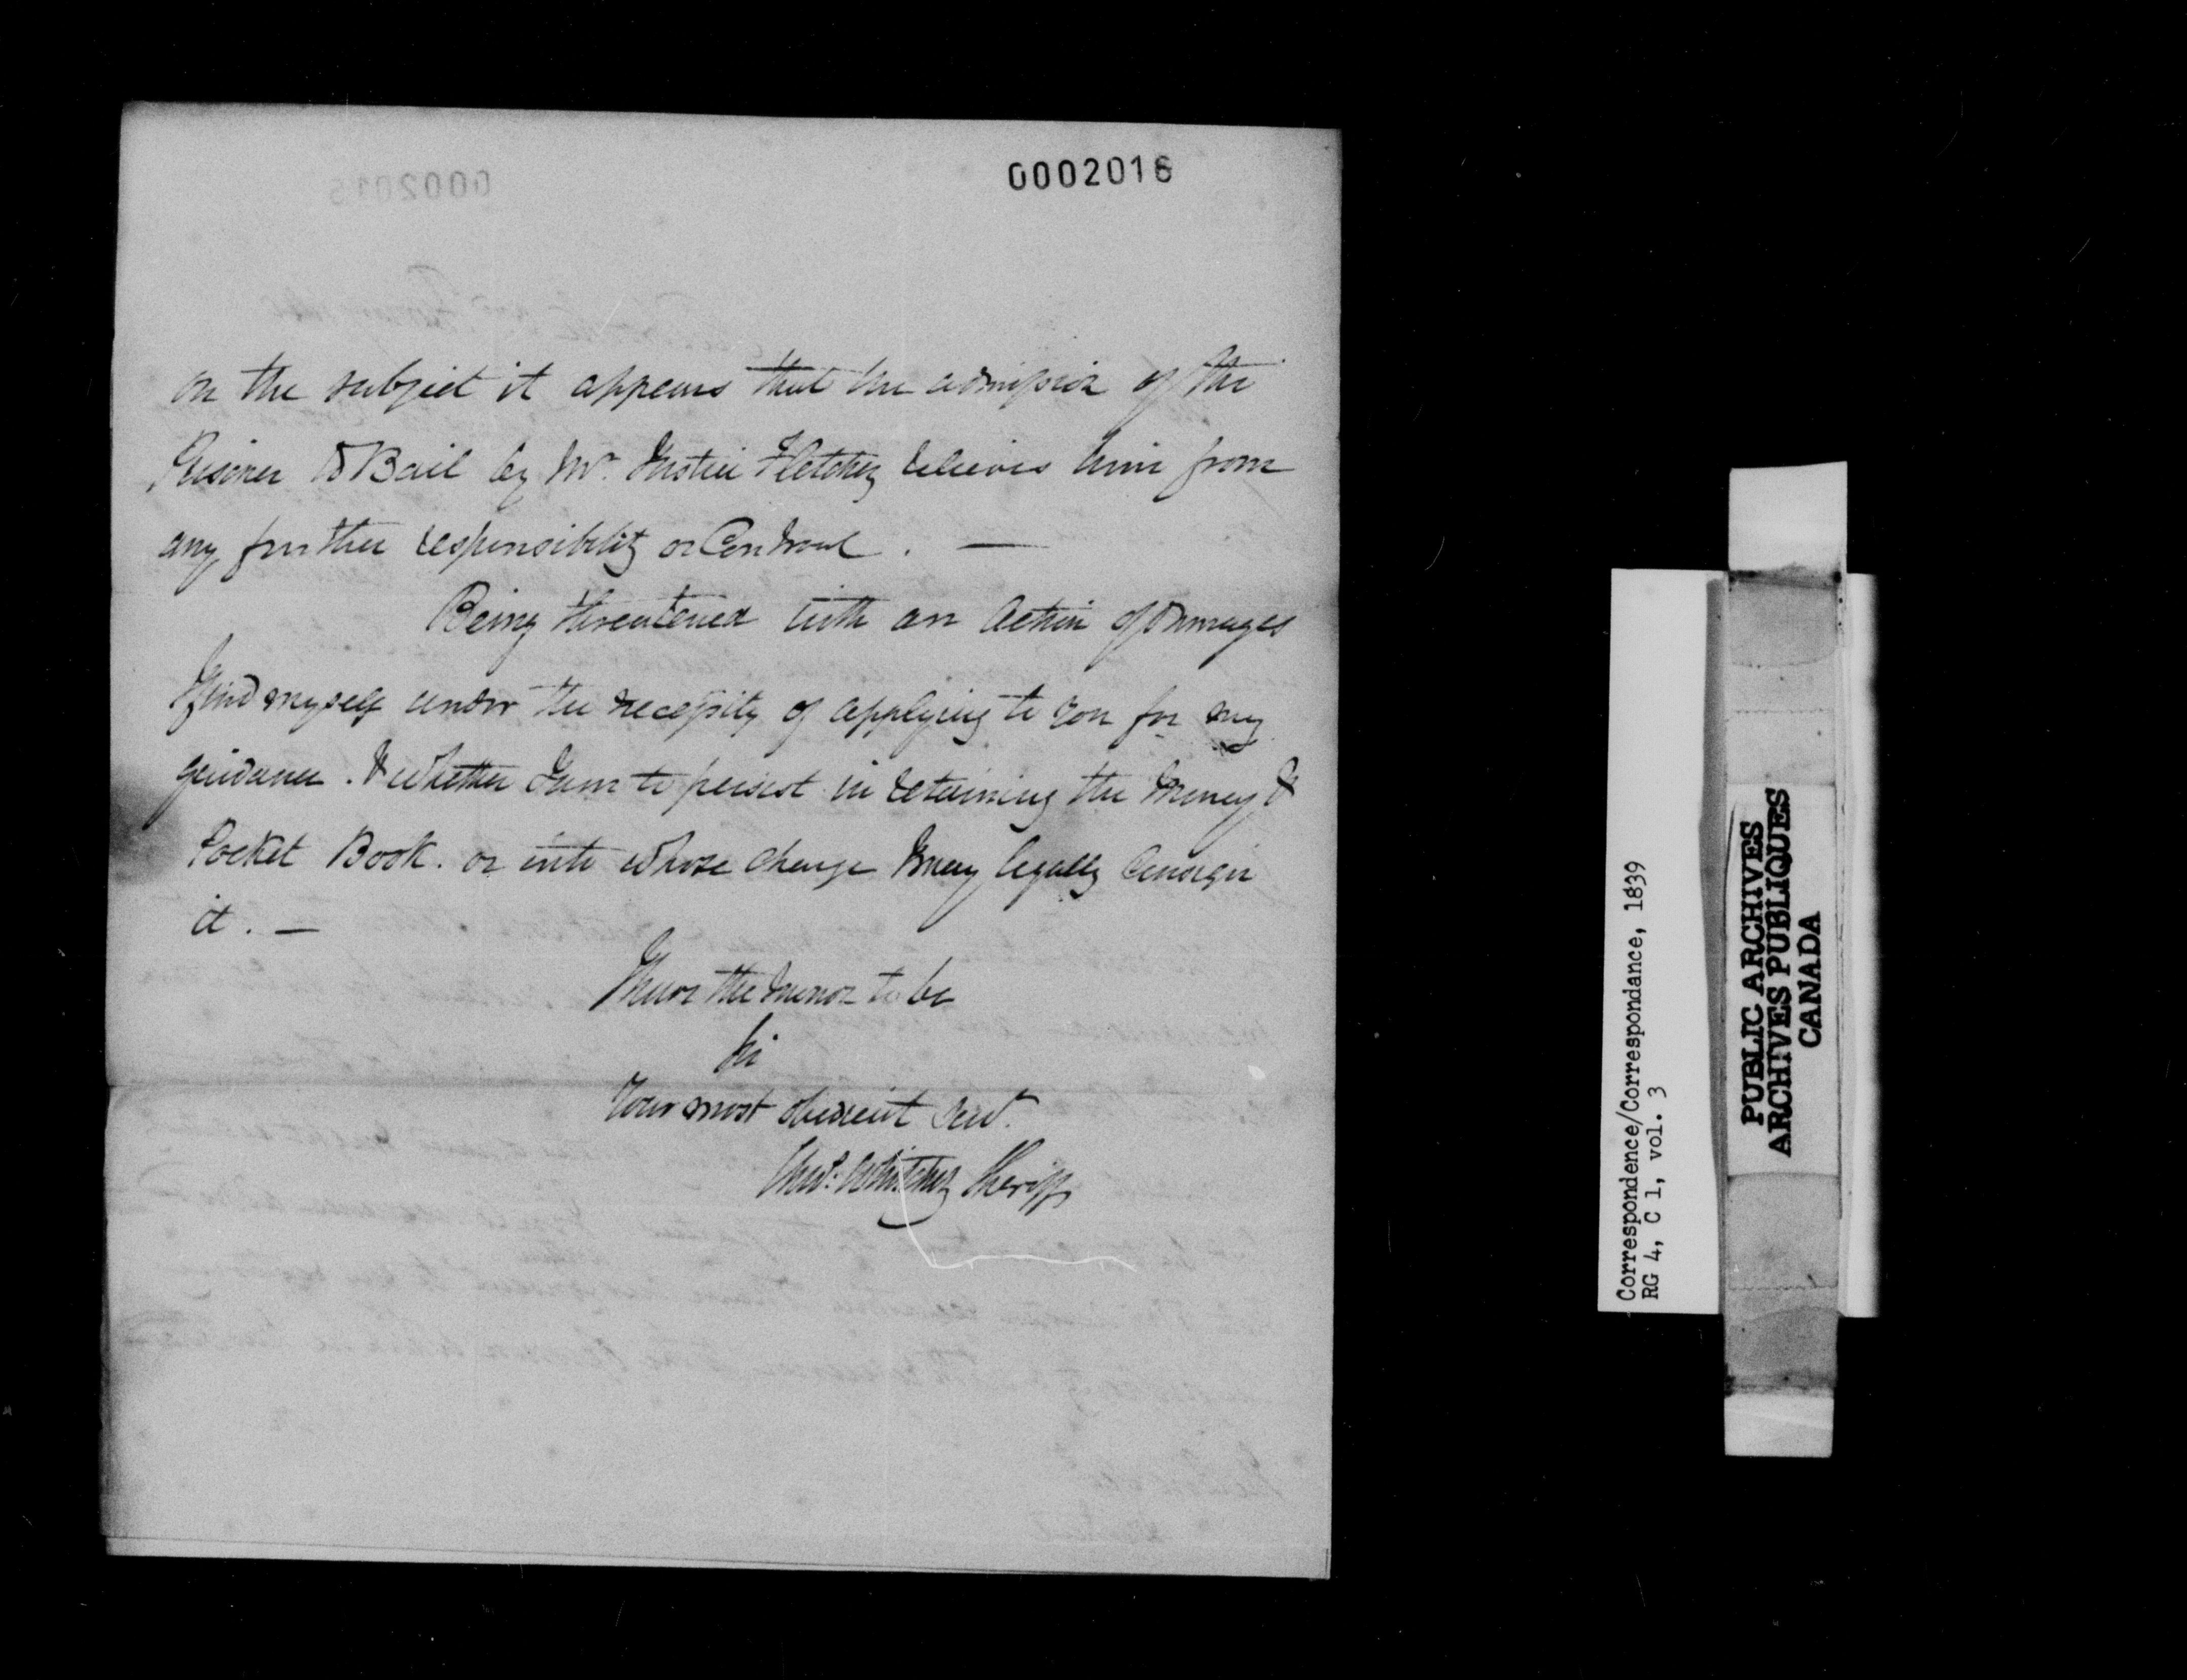 0002016
on the subject it appears that the admission of the
Prisoner to Bail by Mr. Justice Fletcher relieves him from
any further responsibility or Controul. —
Being threatened with an Action of Damages
I find myself under the necessity of applying to you for my
guidance. & whether I am to persist in retaining the Money &
Pocket Book. or into whose charge I may legally consign
it. —
I have the honor to be
Sir
Your most obedient Servt.
Whitcher Sheriff
Correspondence/Correspondance, 1839
RG 4, C 1, vol. 3
PUBLIC ARCHIVES
ARCHIVES PUBLIQUES
CANADA